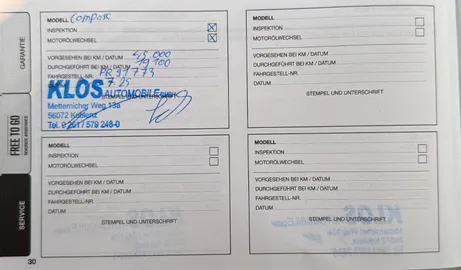 GARANTIE
FREE TO GO
SERVICE
MODELL Compass
INSPEKTION
MOTORÖLWECHSEL
VORGESEHEN BEI KM / DATUM 45 000
DURCHGEFÜHRT BEI KM / DATUM 19 100
FAHRGESTELL-NR. PR 91773
7.25
KLOS AUTOMOBILE
STEMPEL UND UNTERSCHRIFT
Metternicher Weg 13a
56072 Koblenz
Tel. 0 2617 579 248-0
MODELL
INSPEKTION
MOTORÖLWECHSEL
VORGESEHEN BEI KM / DATUM
DURCHGEFÜHRT BEI KM / DATUM
FAHRGESTELL-NR.
DATUM
STEMPEL UND UNTERSCHRIFT
MODELL
INSPEKTION
MOTORÖLWECHSEL
VORGESEHEN BEI KM / DATUM
DURCHGEFÜHRT BEI KM / DATUM
FAHRGESTELL-NR.
DATUM
STEMPEL UND UNTERSCHRIFT
MODELL
INSPEKTION
MOTORÖLWECHSEL
VORGESEHEN BEI KM / DATUM
DURCHGEFÜHRT BEI KM / DATUM
FAHRGESTELL-NR.
DATUM
STEMPEL UND UNTERSCHRIFT
30